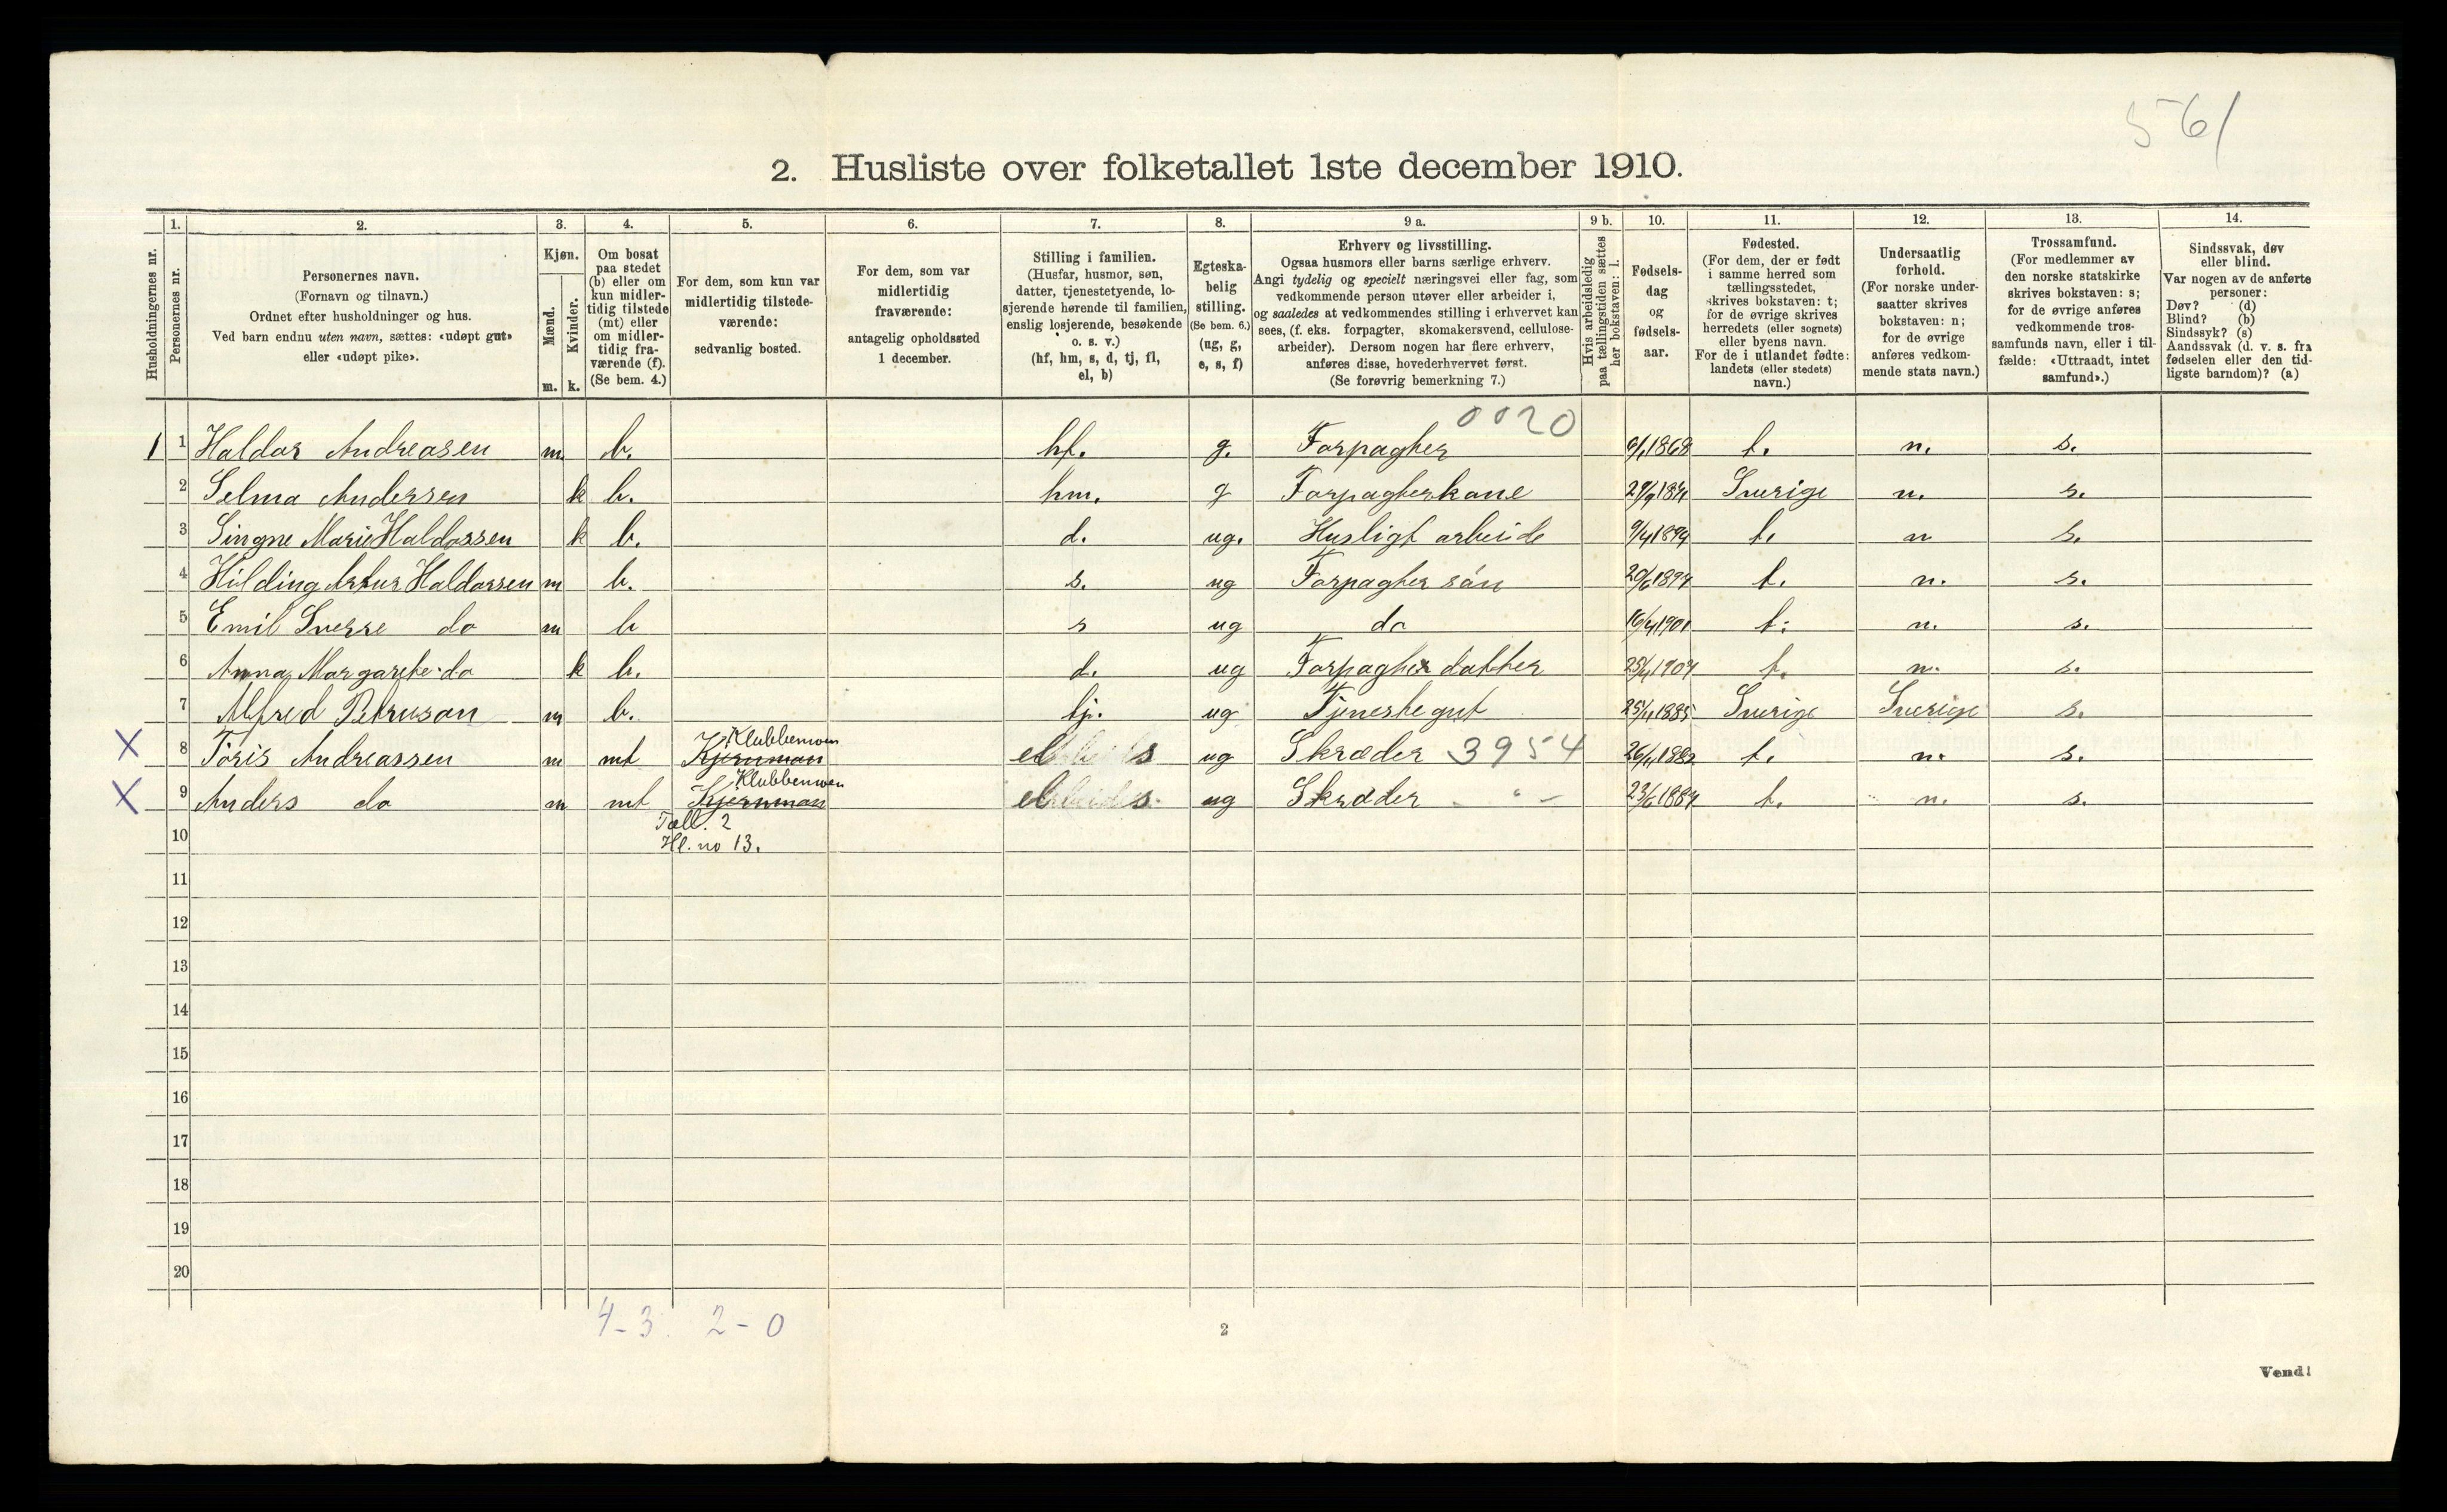 561
2. Husliste over folketallet 1ste december 1910.
Husholdningernes nr.
1.
Personernes nr.
2.
Personernes navn.
(Fornavn og tilnavn.)
Ordnet efter husholdninger og hus.
Ved barn endnu uten navn, sættes: «udøpt gut»
eller «udøpt pike».
3.
Kjøn.
Mænd.
Kvinder.
m. k.
4.
Om bosat
paa stedet
(b) eller om
kun midler-
tidig tilstede
(mt) eller
om midler-
tidig fra-
værende (f).
(Se bem. 4.)
5.
For dem, som kun var
midlertidig tilstede-
værende:
sedvanlig bosted.
6.
For dem, som var
midlertidig
fraværende:
antagelig opholdssted
1 december.
7.
Stilling i familien.
(Husfar, husmor, søn,
datter, tjenestetyende, lo-
sjerende hørende til familien,
enslig losjerende, besøkende
o. s. v.)
(hf, hm, s, d, tj, fl,
el, b)
8.
Egteska-
belig
stilling.
(Se bem. 6.)
(ug, g,
e, s, f)
9 a.
Erhverv og livsstilling.
Ogsaa husmors eller barns særlige erhverv.
Angi tydelig og specielt næringsvei eller fag, som
vedkommende person utøver eller arbeider i,
og saaledes at vedkommendes stilling i erhvervet kan
sees, (f. eks. forpagter, skomakersvend, cellulose-
arbeider). Dersom nogen har flere erhverv,
anføres disse, hovederhvervet først.
(Se forøvrig bemerkning 7.)
9 b.
Hvis arbeidsledig
paa tællingstiden sættes
her bokstaven: l.
10.
Fødsels-
dag
og
fødsels-
aar.
11.
Fødested.
(For dem, der er født
i samme herred som
tællingsstedet,
skrives bokstaven: t;
for de øvrige skrives
herredets (eller sognets)
eller byens navn.
For de i utlandet fødte:
landets (eller stedets)
navn.)
12.
Undersaatlig
forhold.
(For norske under-
saatter skrives
bokstaven: n;
for de øvrige
anføres vedkom-
mende stats navn.)
13.
Trossamfund.
(For medlemmer av
den norske statskirke
skrives bokstaven: s;
for de øvrige anføres
vedkommende tros-
samfunds navn, eller i til-
fælde: «Uttraadt, intet
samfund».)
14.
Sindssvak, døv
eller blind.
Var nogen av de anførte
personer:
Døv? (d)
Blind? (b)
Sindssyk? (s)
Aandssvak (d. v. s. fra
fødselen eller den tid-
ligste barndom)? (a)
0020
1 1 Haldor Andreasen m b. hf. g. Forpagter 6/1 1868 t. n. s.
2 Selma Andersen k b. hm. g Forpagterkone Sverige n. s.
3 Singne Marie Haldorsen k b. d. ug. Husligt arbeide 9/4 1894 t. n s.
4 Hilding Artur Haldorsen m b. s. ug Forpagter sön 20/6 1897 t. n. s.
5 Emil Sverre do m b s ug do 16/4 1901 t. n. s.
6 Anna Margarete do k b. d. ug Forpagter datter t. n. s.
7 Alfred Petruson m b. tj. ug Tjeneste gut Sverige Sverige s.
Klubbenmoen
X 8 Toris Andreassen m mt Kjernmoen el ug Skræder 3954 t. n. s.
Klubbenmoen
X 9 Anders do m mt Kjernmoen el ug Skræder - " - 23/6 1887 t. n. s.
Tæll. 2
10
Hl. no 13.
11
12
13
14
15
16
17
18
19
20
4-3. 2-0
2
Vend!